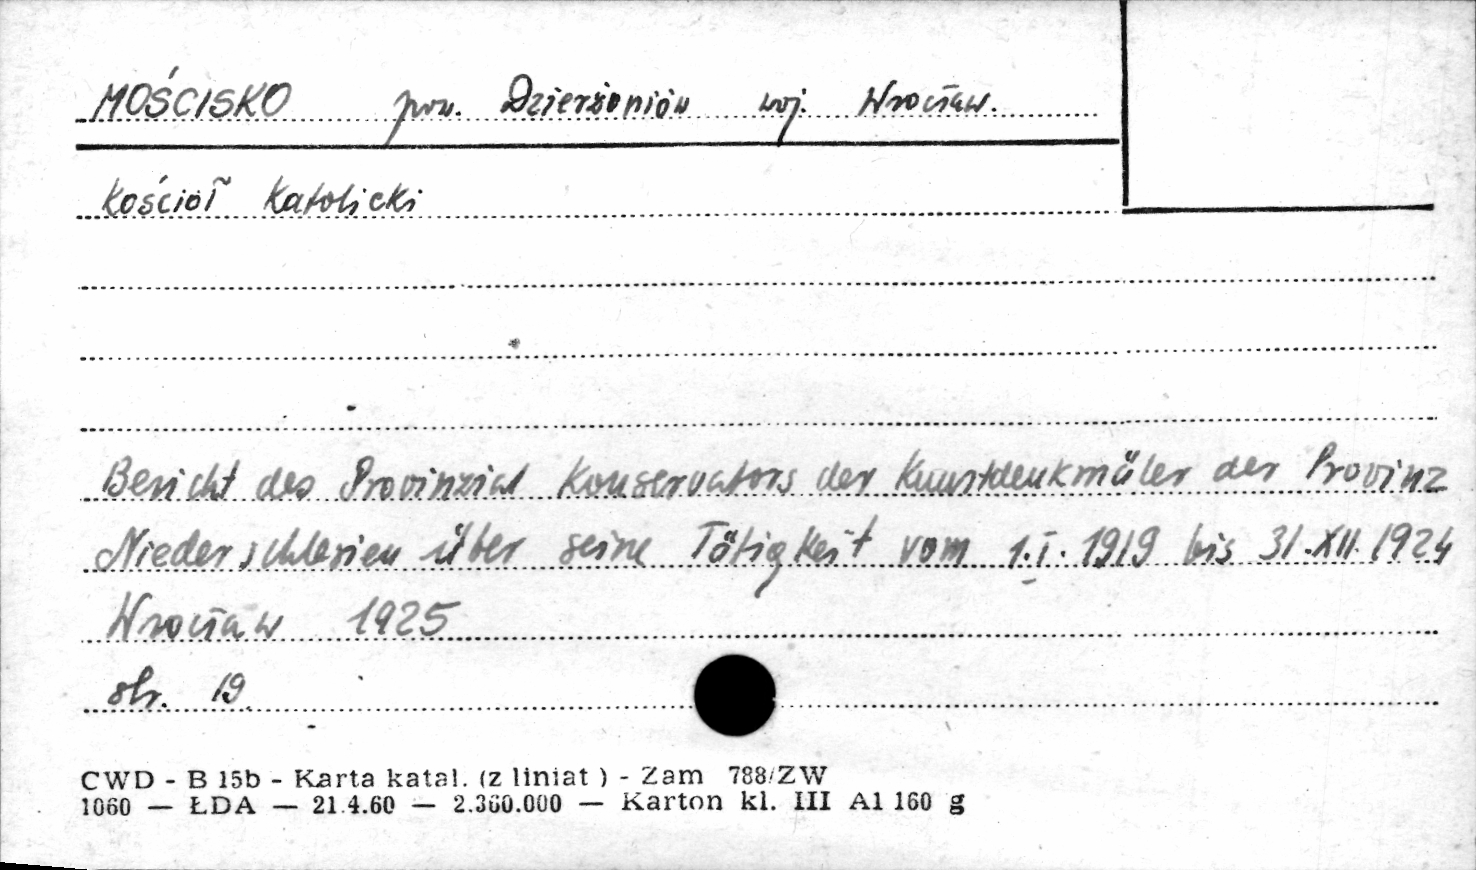 MOŚCISKO pow. Dzierżoniów woj. Wrocław.
Kościół Katolicki
Bericht des Provinzial Konservators der Kunstdenkmäler der Provinz
Niederschlesien über seine Tätigkeit vom 1.I. 1919 bis 31.XII.1924
Wrocław 1925
str. 19.
CWD - B 15b - Karta katal. (z liniat ) - Zam 788/ZW
1060 — ŁDA — 21.4.60 — 2.360.000 — Karton kl. III A1 160 g